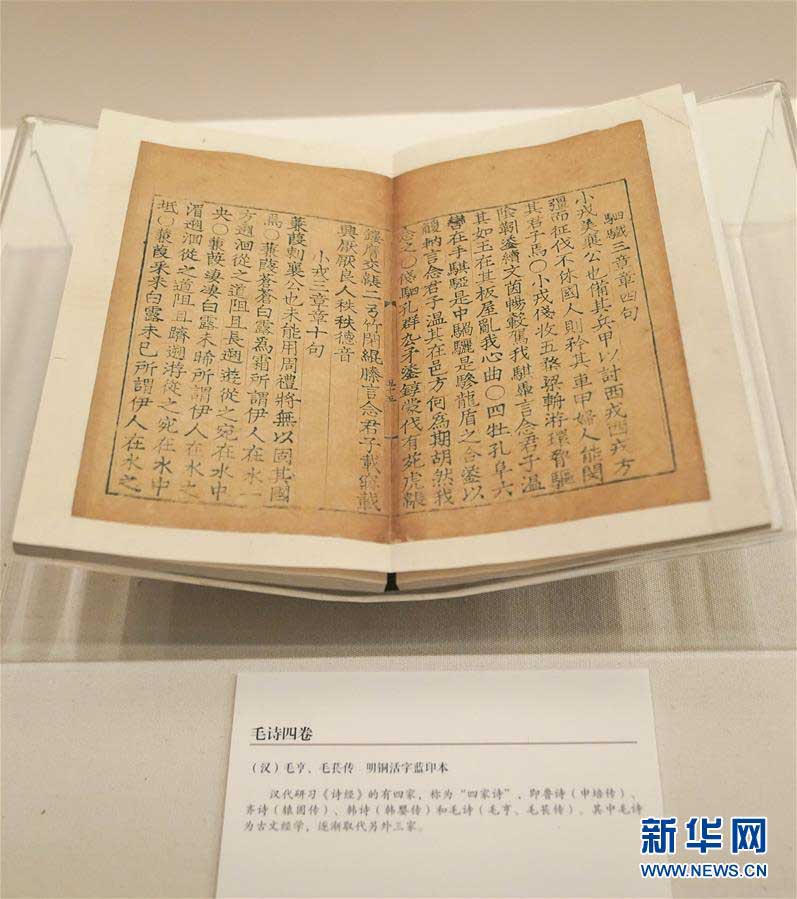 駟驖三章章四句
小戎美襄公也備其兵甲以討西戎西戎方
彊而征伐不休國人則矜其車甲婦人能閔
其君子焉○小戎俴收五楘梁輈游環脅驅
陰靷鋈續文茵暢轂駕我騏馵言念君子溫
其如玉在其板屋亂我心曲○四牡孔阜六
轡在手騏駵是中騧驪是驂龍盾之合鋈以
觼軜言念君子溫其在邑方何為期胡然我
念之○俴駟孔群厹矛鋈錞蒙伐有苑虎韔
鏤膺交韔二弓竹閉緄縢言念君子載寢載
興厭厭良人秩秩德音
小戎三章章十句
蒹葭刺襄公也未能用周禮將無以固其國
焉○蒹葭蒼蒼白露為霜所謂伊人在水一
方遡洄從之道阻且長遡遊從之宛在水中
央○蒹葭淒淒白露未晞所謂伊人在水之
湄遡洄從之道阻且躋遡游從之宛在水中
坻○蒹葭采采白露未已所謂伊人在水之
毛诗四卷
（汉）毛亨、毛苌传 明铜活字蓝印本
汉代研习《诗经》的有四家，称为“四家诗”，即鲁诗（申培传）、
齐诗（辕固传）、韩诗（韩婴传）和毛诗（毛亨、毛苌传）。其中毛诗
为古文经学，逐渐取代另外三家。
新华网
WWW.NEWS.CN